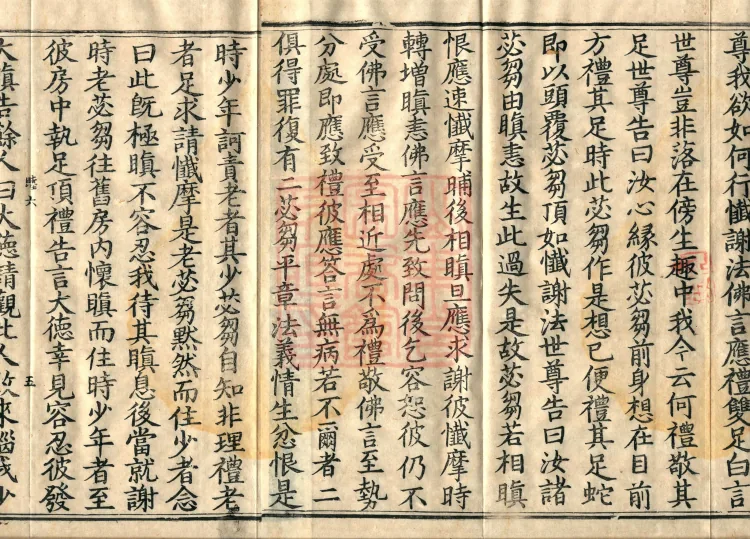 尊我欲如何行懺謝法佛言應禮雙足白言
世尊豈非落在傍生趣中我今云何禮敬其
足世尊告曰汝心緣彼苾芻前身想在目前
方禮其足時此苾芻作是想已便禮其足蛇
即以頭覆苾芻頂如懺謝法世尊告曰汝諸
苾芻由瞋恚故生此過失是故苾芻若相瞋
恨應速懺摩晡後相瞋旦應求謝彼懺摩時
轉增瞋恚佛言應先致問後乞容恕彼仍不
受佛言應受至相近處不爲禮敬佛言至勢
分處即應致禮彼應答言無病若不爾者二
俱得罪復有二苾芻平章法義情生忿恨是
時少年訶責老者其少苾芻自知非理禮老
者足求請懺摩是老苾芻默然而住少者念
曰此既極瞋不容忍我待其瞋息後當就謝
時老苾芻往舊房內懷瞋而住時少年者至
彼房中執足頂禮告言大德幸見容忍彼發
大瞋告餘人曰大德請觀此人故來惱我少
六
五